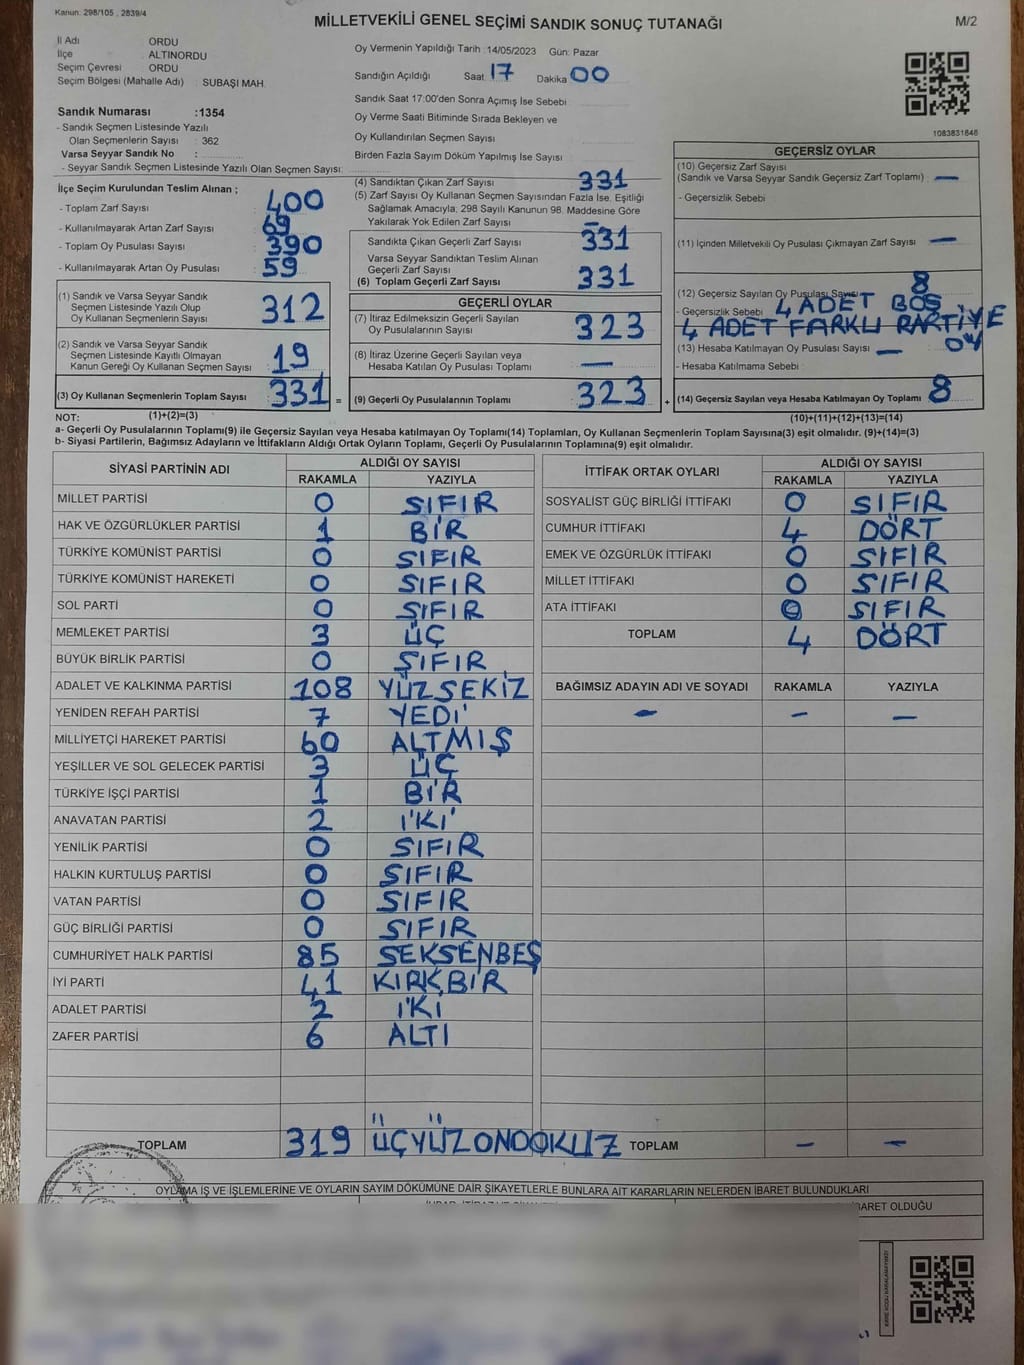 Kanun: 298/105 , 2839/4
MİLLETVEKİLİ GENEL SEÇİMİ SANDIK SONUÇ TUTANAĞI
M/2
İl Adı ORDU
İlçe ALTINORDU
Seçim Çevresi ORDU
Seçim Bölgesi (Mahalle Adı) SUBAŞI MAH.
Oy Vermenin Yapıldığı Tarih : 14/05/2023 Gün: Pazar
Sandığın Açıldığı Saat 17 Dakika 00
Sandık Saat 17:00'den Sonra Açımış İse Sebebi
Oy Verme Saati Bitiminde Sırada Bekleyen ve
Oy Kullandırılan Seçmen Sayısı
Birden Fazla Sayım Döküm Yapılmış İse Sayısı
1083831648
Sandık Numarası :1354
- Sandık Seçmen Listesinde Yazılı
Olan Seçmenlerin Sayısı : 362
Varsa Seyyar Sandık No :
- Seyyar Sandık Seçmen Listesinde Yazılı Olan Seçmen Sayısı:
İlçe Seçim Kurulundan Teslim Alınan ;
- Toplam Zarf Sayısı 400
- Kullanılmayarak Artan Zarf Sayısı 69
- Toplam Oy Pusulası Sayısı 390
- Kullanılmayarak Artan Oy Pusulası 59
(1) Sandık ve Varsa Seyyar Sandık
Seçmen Listesinde Yazılı Olup
Oy Kullanan Seçmenlerin Sayısı 312
(2) Sandık ve Varsa Seyyar Sandık
Seçmen Listesinde Kayıtlı Olmayan
Kanun Gereği Oy Kullanan Seçmen Sayısı 19
(3) Oy Kullanan Seçmenlerin Toplam Sayısı 331 =
(4) Sandıktan Çıkan Zarf Sayısı 331
(5) Zarf Sayısı Oy Kullanan Seçmen Sayısından Fazla İse, Eşitliği
Sağlamak Amacıyla; 298 Sayılı Kanunun 98. Maddesine Göre
Yakılarak Yok Edilen Zarf Sayısı –
Sandıkta Çıkan Geçerli Zarf Sayısı 331
Varsa Seyyar Sandıktan Teslim Alınan
Geçerli Zarf Sayısı
(6) Toplam Geçerli Zarf Sayısı 331
GEÇERLİ OYLAR
(7) İtiraz Edilmeksizin Geçerli Sayılan
Oy Pusulalarının Sayısı 323
(8) İtiraz Üzerine Geçerli Sayılan veya
Hesaba Katılan Oy Pusulası Toplamı —
(9) Geçerli Oy Pusulalarının Toplamı 323 +
GEÇERSİZ OYLAR
(10) Geçersiz Zarf Sayısı
(Sandık ve Varsa Seyyar Sandık Geçersiz Zarf Toplamı) —
- Geçersizlik Sebebi
(11) İçinden Milletvekili Oy Pusulası Çıkmayan Zarf Sayısı —
(12) Geçersiz Sayılan Oy Pusulası Sayısı 8
- Geçersizlik Sebebi 4 ADET BOŞ
4 ADET FARKLI PARTİYE
OY
(13) Hesaba Katılmayan Oy Pusulası Sayısı —
- Hesaba Katılmama Sebebi
(14) Geçersiz Sayılan veya Hesaba Katılmayan Oy Toplamı 8
NOT: (1)+(2)=(3)
(10)+(11)+(12)+(13)=(14)
a- Geçerli Oy Pusulaları Toplamı(9) ile Geçersiz Sayılan veya Hesaba katılmayan Oy Toplamı(14) Toplamları, Oy Kullanan Seçmenlerin Toplam Sayısına(3) eşit olmalıdır. (9)+(14)=(3)
b- Siyasi Partilerin, Bağımsız Adayların ve İttifakların Aldığı Ortak Oyların Toplamı, Geçerli Oy Pusulalarının Toplamına(9) eşit olmalıdır.
SİYASİ PARTİNİN ADI ALDIĞI OY SAYISI
RAKAMLA YAZIYLA
MİLLET PARTİSİ 0 SIFIR
HAK VE ÖZGÜRLÜKLER PARTİSİ 1 BİR
TÜRKİYE KOMÜNİST PARTİSİ 0 SIFIR
TÜRKİYE KOMÜNİST HAREKETİ 0 SIFIR
SOL PARTİ 0 SIFIR
MEMLEKET PARTİSİ 3 ÜÇ
BÜYÜK BİRLİK PARTİSİ 0 SIFIR
ADALET VE KALKINMA PARTİSİ 108 YÜZSEKİZ
YENİDEN REFAH PARTİSİ 7 YEDİ
MİLLİYETÇİ HAREKET PARTİSİ 60 ALTMIŞ
YEŞİLLER VE SOL GELECEK PARTİSİ 3 ÜÇ
TÜRKİYE İŞÇİ PARTİSİ 1 BİR
ANAVATAN PARTİSİ 2 İKİ
YENİLİK PARTİSİ 0 SIFIR
HALKIN KURTULUŞ PARTİSİ 0 SIFIR
VATAN PARTİSİ 0 SIFIR
GÜÇ BİRLİĞİ PARTİSİ 0 SIFIR
CUMHURİYET HALK PARTİSİ 85 SEKSENBEŞ
İYİ PARTİ 41 KIRKBİR
ADALET PARTİSİ 2 İKİ
ZAFER PARTİSİ 6 ALTI
TOPLAM 319 ÜÇYÜZONDOKUZ
İTTİFAK ORTAK OYLARI ALDIĞI OY SAYISI
RAKAMLA YAZIYLA
SOSYALİST GÜÇ BİRLİĞİ İTTİFAKI 0 SIFIR
CUMHUR İTTİFAKI 4 DÖRT
EMEK VE ÖZGÜRLÜK İTTİFAKI 0 SIFIR
MİLLET İTTİFAKI 0 SIFIR
ATA İTTİFAKI 0 SIFIR
TOPLAM 4 DÖRT
BAĞIMSIZ ADAYIN ADI VE SOYADI RAKAMLA YAZIYLA
— — —
TOPLAM — —
OYLAMA İŞ VE İŞLEMLERİNE VE OYLARIN SAYIM DÖKÜMÜNE DAİR ŞİKAYETLERLE BUNLARA AİT KARARLARIN NELERDEN İBARET BULUNDUKLARI
İBARET OLDUĞU